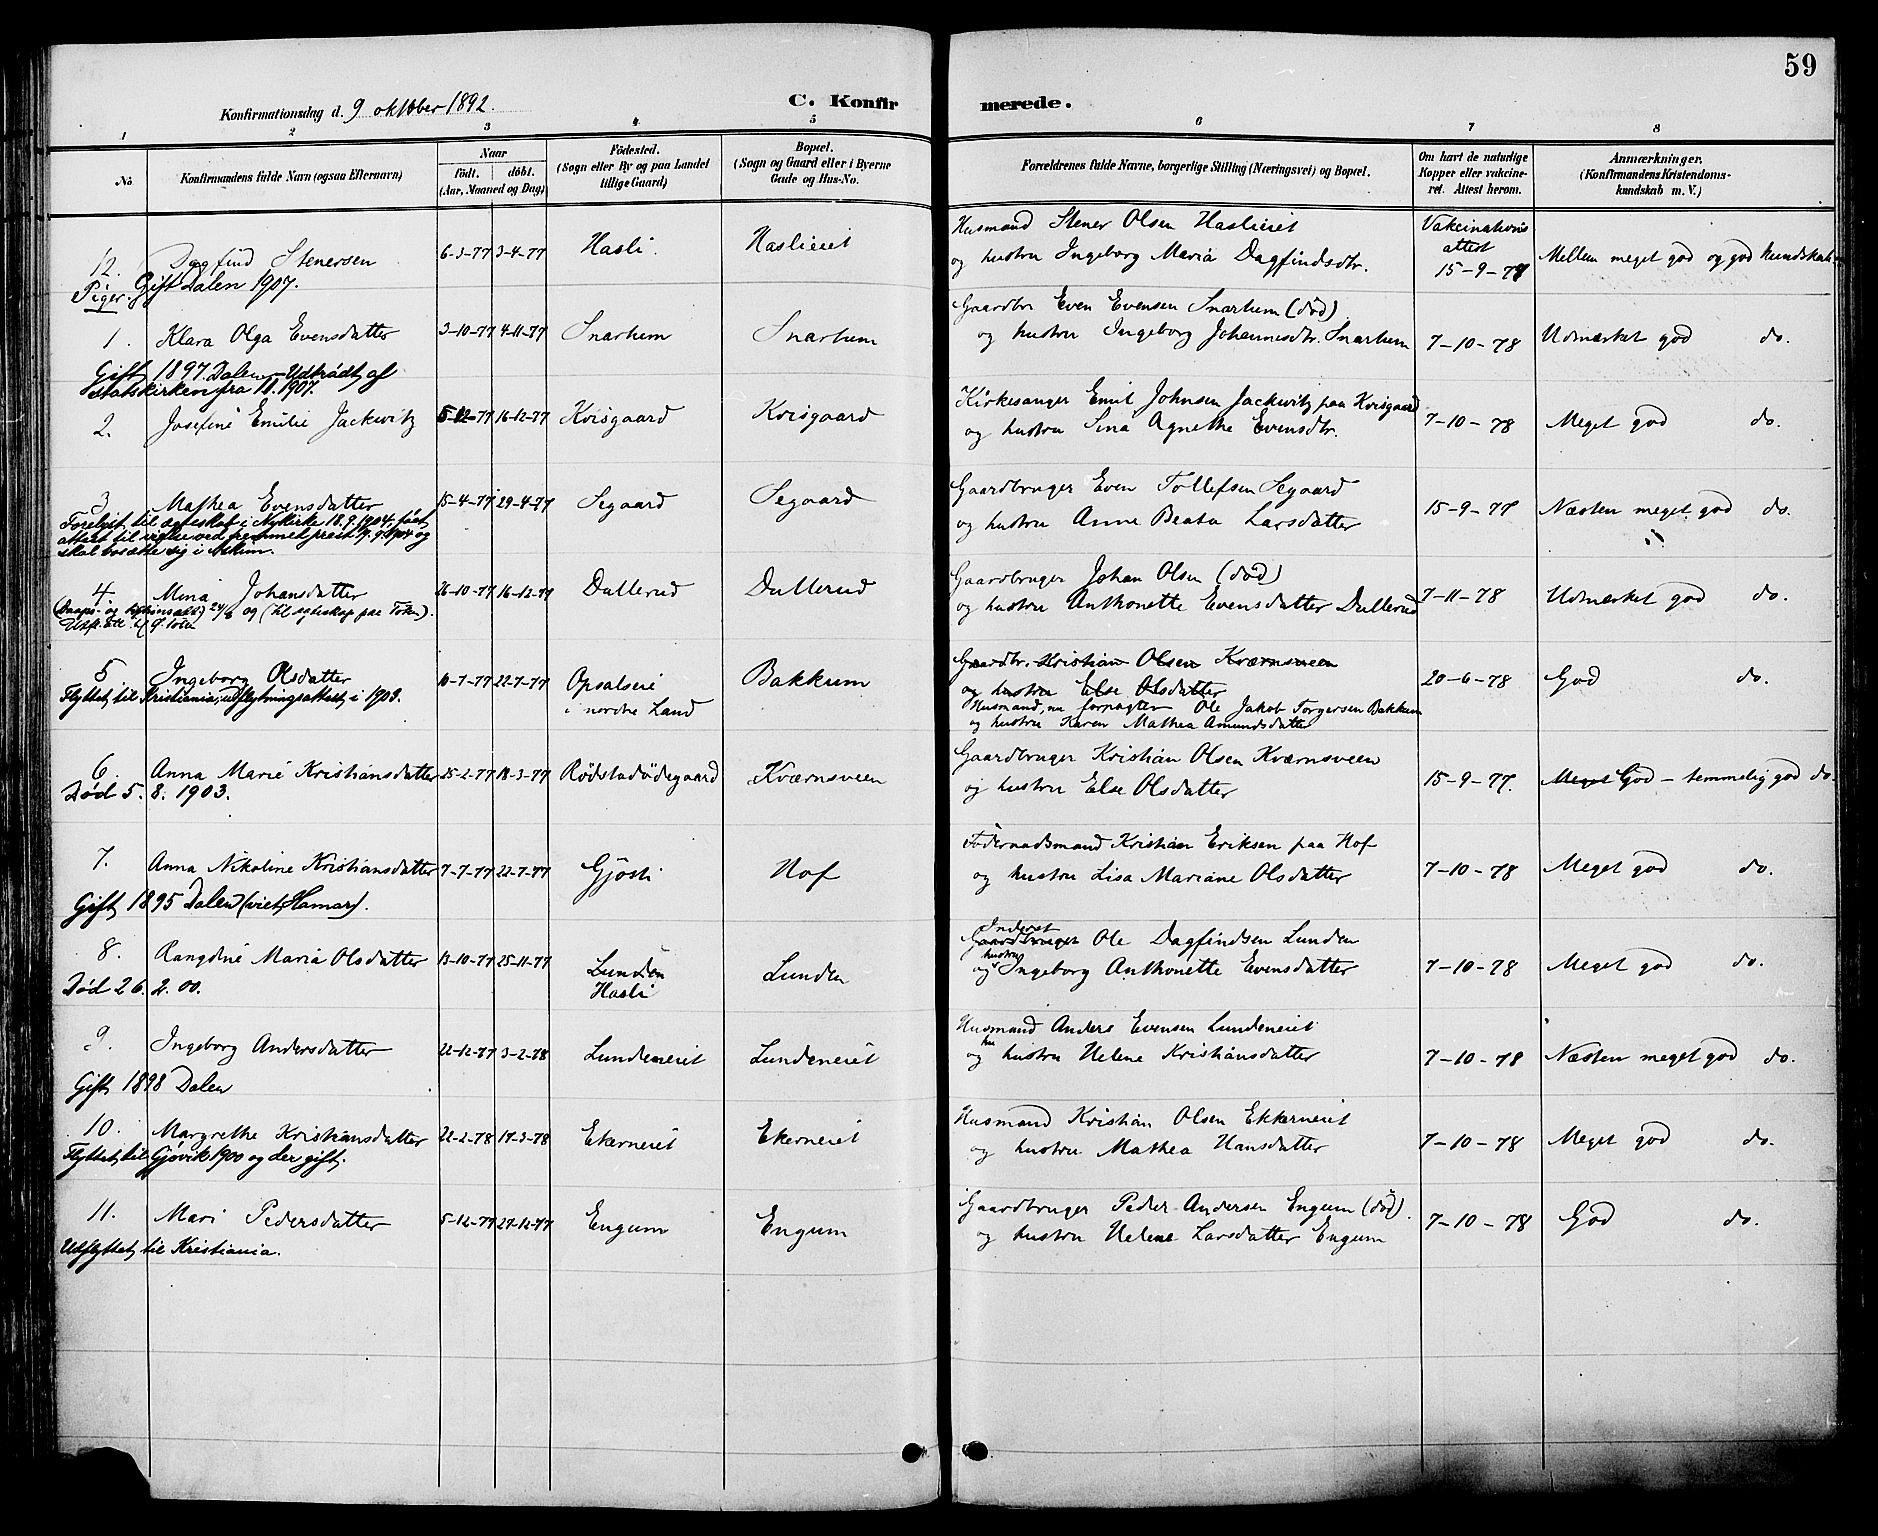 59
Konfirmationsdag d. 9 oktober 1892.
C. Konfirmerede.
1 2 3 4 5 6 7 8
No.
Konfirmandens fulde Navn (ogsaa Efternavn)
Naar
födt. döbt.
(Aar, Maaned og Dag)
Födested.
(Sogn eller By og paa Landet
tillige Gaard)
Bopæl.
(Sogn og Gaard eller i Byerne
Gade og Hus-No.
Forældrenes fulde Navne, borgerlige Stilling (Næringsvei) og Bopæl.
Om havt de naturlige
Kopper eller vakcine-
ret. Attest herom.
Anmærkninger.
(Konfirmandens Kristendoms-
kundskab m. V.)
12. Dagfind Stenersen 6-3-77 3-4-77 Hasli. Haslieiet
Husmand Stener Olsen Haslieiet
og hustru Ingeborg Maria Dagfindsdtr.
Vakcinations
attest
15-9-78
Mellem meget god og god kundskab
Gift Dalen 1907.
Piger.
1. Klara Olga Evensdatter 3-10-77 4-11-77 Snartum Snartum
Gaardbr Even Evensen Snartum (død)
og hustru Ingeborg Johannesdtr. Snartum
7-10-78 Udmærket god do.
Gift 1897. Dalen – Udtrådt af
statskirken fra 1907.
2. Josefine Emilie Jackwitz 5-12-77 16-12-77 Kvisgaard Kvisgaard
Kirkesanger Emil Johnsen Jackwitz paa Kvisgaard
og hustru Sina Agnethe Evensdtr.
7-10-78 Meget god do.
3 Mathea Evensdatter 15-4-77 29-4-77 Segaard Segaard
Gaardbruger Even Tollefsen Segaard
og hustru Anne Beata Larsdatter
15-9-77 Næsten meget god do.
Forelyst til ægteskab i Nykirke 18.9.1904, fået
attest til vielse ved fremmet prest 19.9.1904 og
skal bosætte sig i Askim.
4. Mina Johansdatter 26-10-77 16-12-77 Dullerud Dullerud
Gaardbruger Johan Olsen (død)
og hustru Anthonette Evensdatter Dullerud
7-11-78 Udmærket god do.
24/6 og (til egteskap paa Toten).
5 Ingeborg Olsdatter 16-7-77 22-7-77 Opsalseie Bakkum
i nordre Land
Gaardbr. Kristian Olsen Kværnsveen
og hustru Else Olsdatter
Husmand, nu forpagter Ole Jakob Torgersen Bakkum
og hustru Karen Mathea Amundsdatter
20-6-78 God do.
Flyttet til Kristiania, udflytningsattest i 1903.
6. Anna Marie Kristiansdatter 25-2-77 18-3-77 Rödstadödegaard Kværnsveen
Gaardbruger Kristian Olsen Kværnsveen
og hustru Else Olsdatter
15-9-77. Meget God – temmelig god do.
Död 5. 8. 1903.
7. Anna Nikoline Kristiansdatter 7-7-77 22-7-77 Gjösli Hof
Föderaadsmand Kristian Eriksen paa Hof
og hustru Lisa Mariane Olsdatter
7-10-78 Meget god do.
Gift 1895 Dalen (viet Hamar).
8. Rangdne Maria Olsdatter 13-10-77 25-11-77 Lunden Lunden
Hasli
Inderst
Gaardbruger Ole Dagfindsen Lunden
hustru
og Ingeborg Anthonette Evensdatter
7-10-78 Meget god do.
Död 26. 2. 00.
9. Ingeborg Andersdatter 22-12-77 3-2-78 Lundeneiet Lundeneiet
Husmand Anders Evensen Lundeneiet
og hustru Helene Kristiansdatter
7-10-78 Næsten meget god do.
Gift 1898 Dalen
10. Margrethe Kristiansdatter 22-2-78 17-3-78 Ekerneiet Ekerneiet
Husmand Kristian Olsen Ekkerneiet
og hustru Mathea Hansdatter
7-10-78 Meget god do.
Flyttet til Gjøvik 1900 og der gift.
11. Mari Pedersdatter 5-12-77 27-12-77 Engum Engum
Gaardbruger Peder Andersen Engum (död).
og hustru Helene Larsdatter Engum
7-10-78 God do.
Udflyttet til Kristiania.